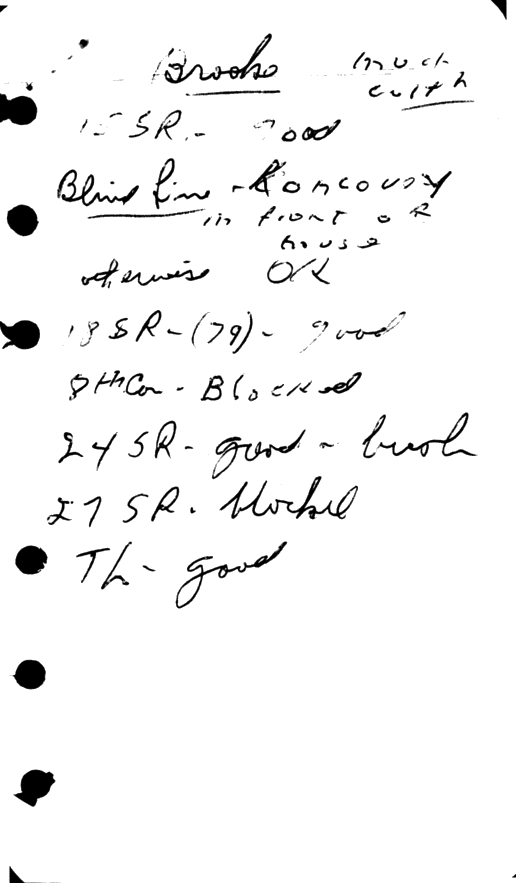 Brooke much
with
15 SR. - good
Blind Line -
in front of
house
otherwise OK
18 SR - (79) - good
8th Con - Blocked
24 SR - good - bush
27 SR. blocked
Th - good